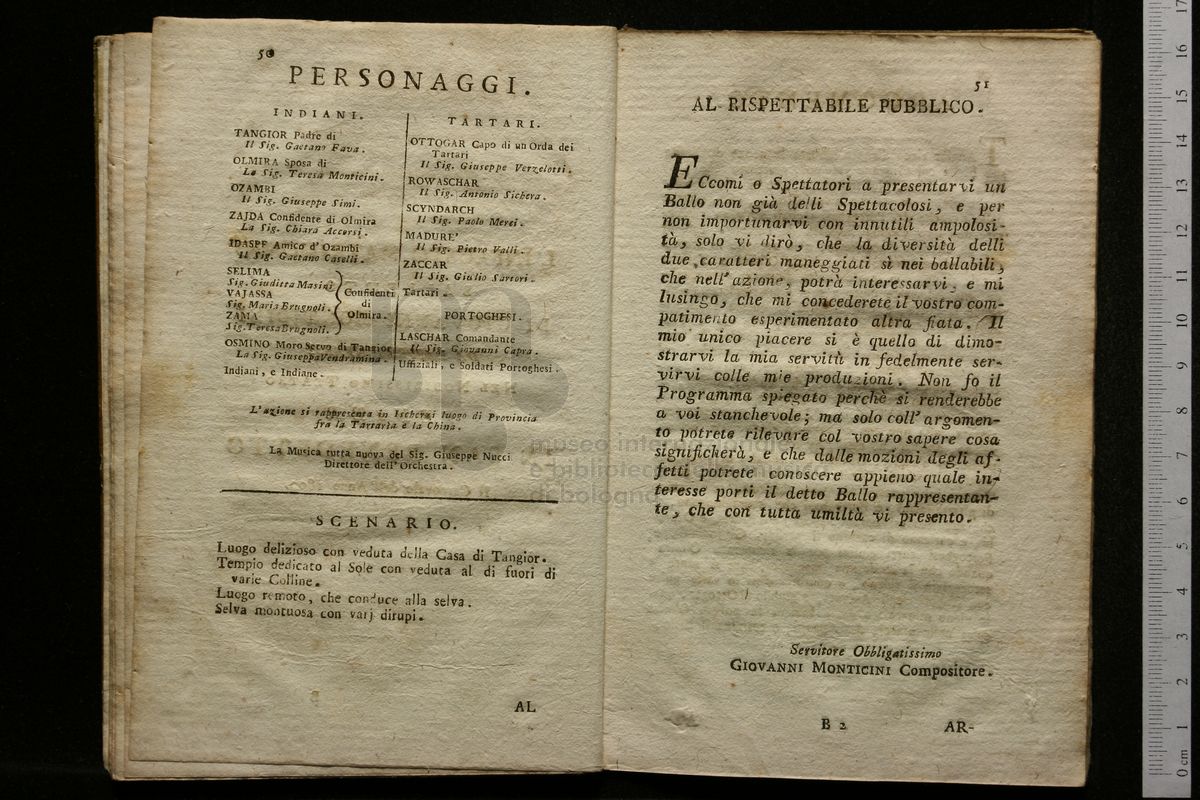 50
PERSONAGGI.
INDIANI.
TANGIOR Padre di
Il Sig. Gaetano Fava.
OLMIRA Sposa di
La Sig. Teresa Monticini.
OZAMBI
Il Sig. Giuseppe Simi.
ZAJDA Confidente di Olmira
La Sig. Chiara Accorsi.
IDASPE Amico d' Ozambi
Il Sig. Gaetano Caselli.
SELIMA
Sig. Giuditta Masini
VAJASSA
Sig. Maria Brugnoli.
ZAMA
Sig. Teresa Brugnoli.
Confidenti
di
Olmira.
OSMINO Moro Servo di Tangior
La Sig. Giuseppa Vendramina.
Indiani, e Indiane.
TARTARI.
OTTOGAR Capo di un Orda dei
Tartari
Il Sig. Giuseppe Verzelotti.
ROWASCHAR
Il Sig. Antonio Sichera.
SCYNDARCH
Il Sig. Paolo Merei.
MADURE'
Il Sig. Pietro Valli.
ZACCAR
Il Sig. Giulio Sartori.
Tartari.
PORTOGHESI.
LASCHAR Comandante
Il Sig. Giovanni Capra.
Uffiziali, e Soldati Portoghesi.
L'azione si rappresenta in Ischerzi luogo di Provincia
fra la Tartaria e la China.
La Musica tutta nuova del Sig. Giuseppe Nucci
Direttore dell'Orchestra.
SCENARIO.
Luogo delizioso con veduta della Casa di Tangior.
Tempio dedicato al Sole con veduta al di fuori di
varie Colline.
Luogo remoto, che conduce alla selva.
Selva montuosa con varj dirupi.
AL
51
AL RISPETTABILE PUBBLICO.
ECcomi o Spettatori a presentarvi un
Ballo non già delli Spettacolosi, e per
non importunarvi con innutili ampolosi-
tà, solo vi dirò, che la diversità delli
due caratteri maneggiati sì nei ballabili,
che nell' azione, potrà interessarvi, e mi
lusingo, che mi concederete il vostro com-
patimento esperimentato altra fiata. Il
mio unico piacere si è quello di dimo-
strarvi la mia servitù in fedelmente ser-
virvi colle mie produzioni. Non fo il
Programma spiegato perchè si renderebbe
a voi stanchevole; ma solo coll' argomen-
to potrete rilevare col vostro sapere cosa
significherà, e che dalle mozioni degli af-
fetti potrete conoscere appieno quale in-
teresse porti il detto Ballo rappresentan-
te, che con tutta umiltà vi presento.
Servitore Obbligatissimo
GIOVANNI MONTICINI Compositore.
B 2
AR-
museo internazionale
e biblioteca della musica
di bologna
0 cm 1 2 3 4 5 6 7 8 9 10 11 12 13 14 15 16 17